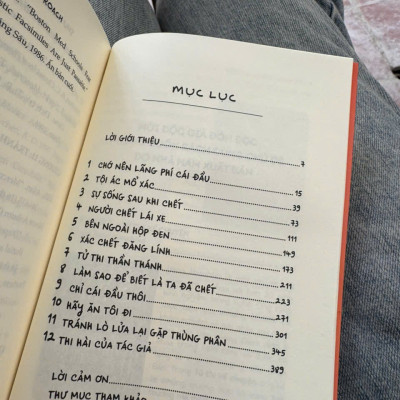 ROACH
"Boston Med. Schools Fear
Facsimiles Are Just
Sáu, 1986. Ấn bản cuối.
MỤC LỤC
LỜI GIỚI THIỆU 7
1 CHỚ NÊN LÃNG PHÍ CÁI ĐẦU 15
2 TỘI ÁC MỔ XÁC 39
3 SỰ SỐNG SAU KHI CHẾT 73
4 NGƯỜI CHẾT LÁI XE 111
5 BÊN NGOÀI HỘP ĐEN 149
6 XÁC CHẾT ĐĂNG LÍNH 173
7 TỬ THI THẦN THÁNH 211
8 LÀM SAO ĐỂ BIẾT LÀ TA ĐÃ CHẾT 223
9 CHỈ CÁI ĐẦU THÔI 271
10 HÃY ĂN TÔI ĐI 301
11 TRÁNH LÒ LỬA LẠI GẶP THÙNG PHÂN 345
12 THI HÀI CỦA TÁC GIẢ 389
LỜI CẢM ƠN
THƯ MỤC THAM KHẢO